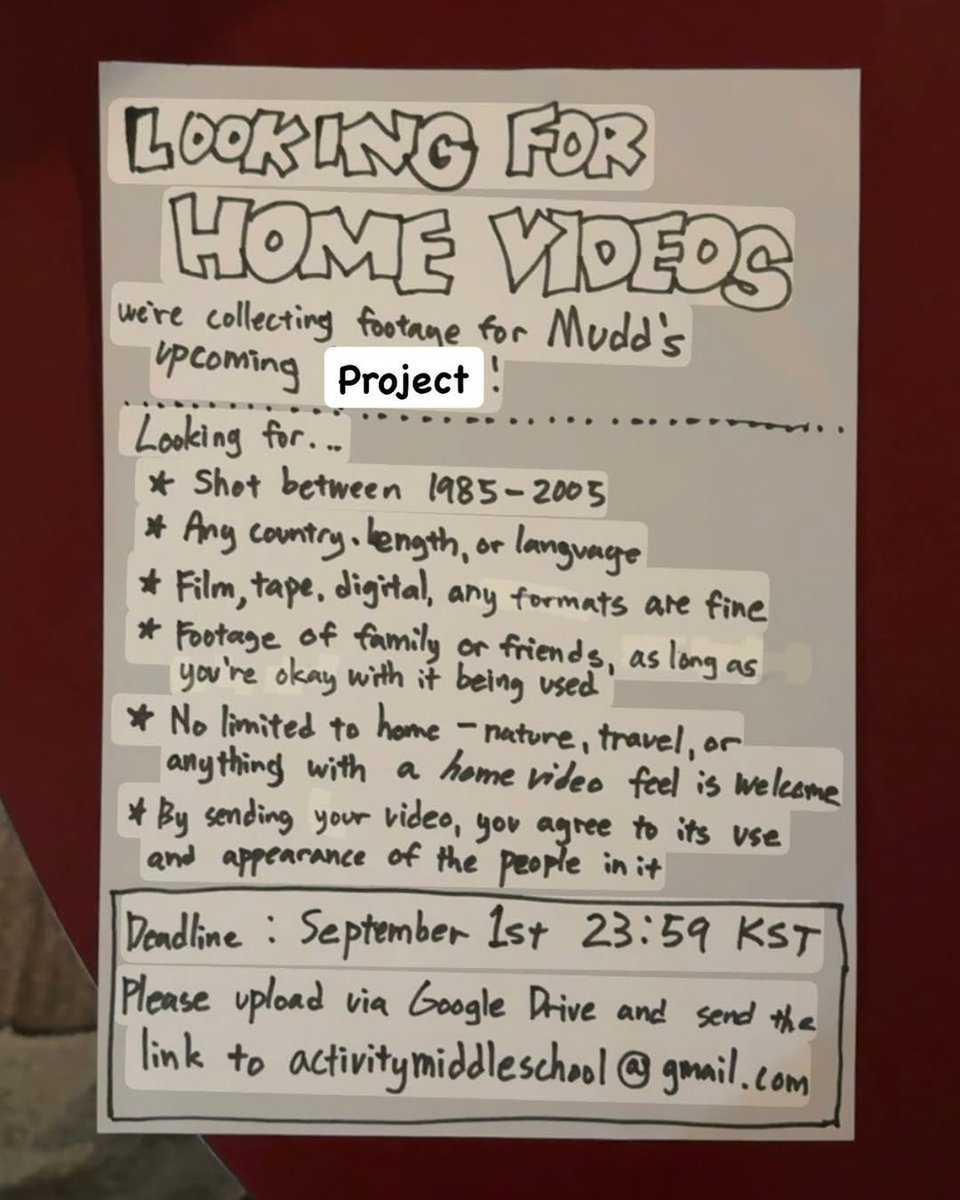 LOOKING FOR
HOME VIDEOS
we're collecting footage for Mudd's
upcoming Project !
Looking for...
* Shot between 1985-2005
* Any country. length, or language
* Film, tape, digital, any formats are fine
* Footage of family or friends, as long as
you're okay with it being used
* No limited to home - nature, travel, or
anything with a home video feel is welcome
* By sending your video, you agree to its use
and appearance of the people in it
Deadline : September 1st 23:59 KST
Please upload via Google Drive and send the
link to activitymiddleschool@gmail.com